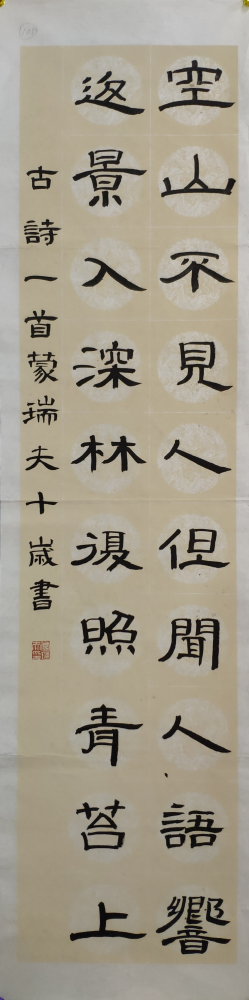 空山不見人但聞人語響
返景入深林復照青苔上
古詩一首蒙瑞夫十歲書